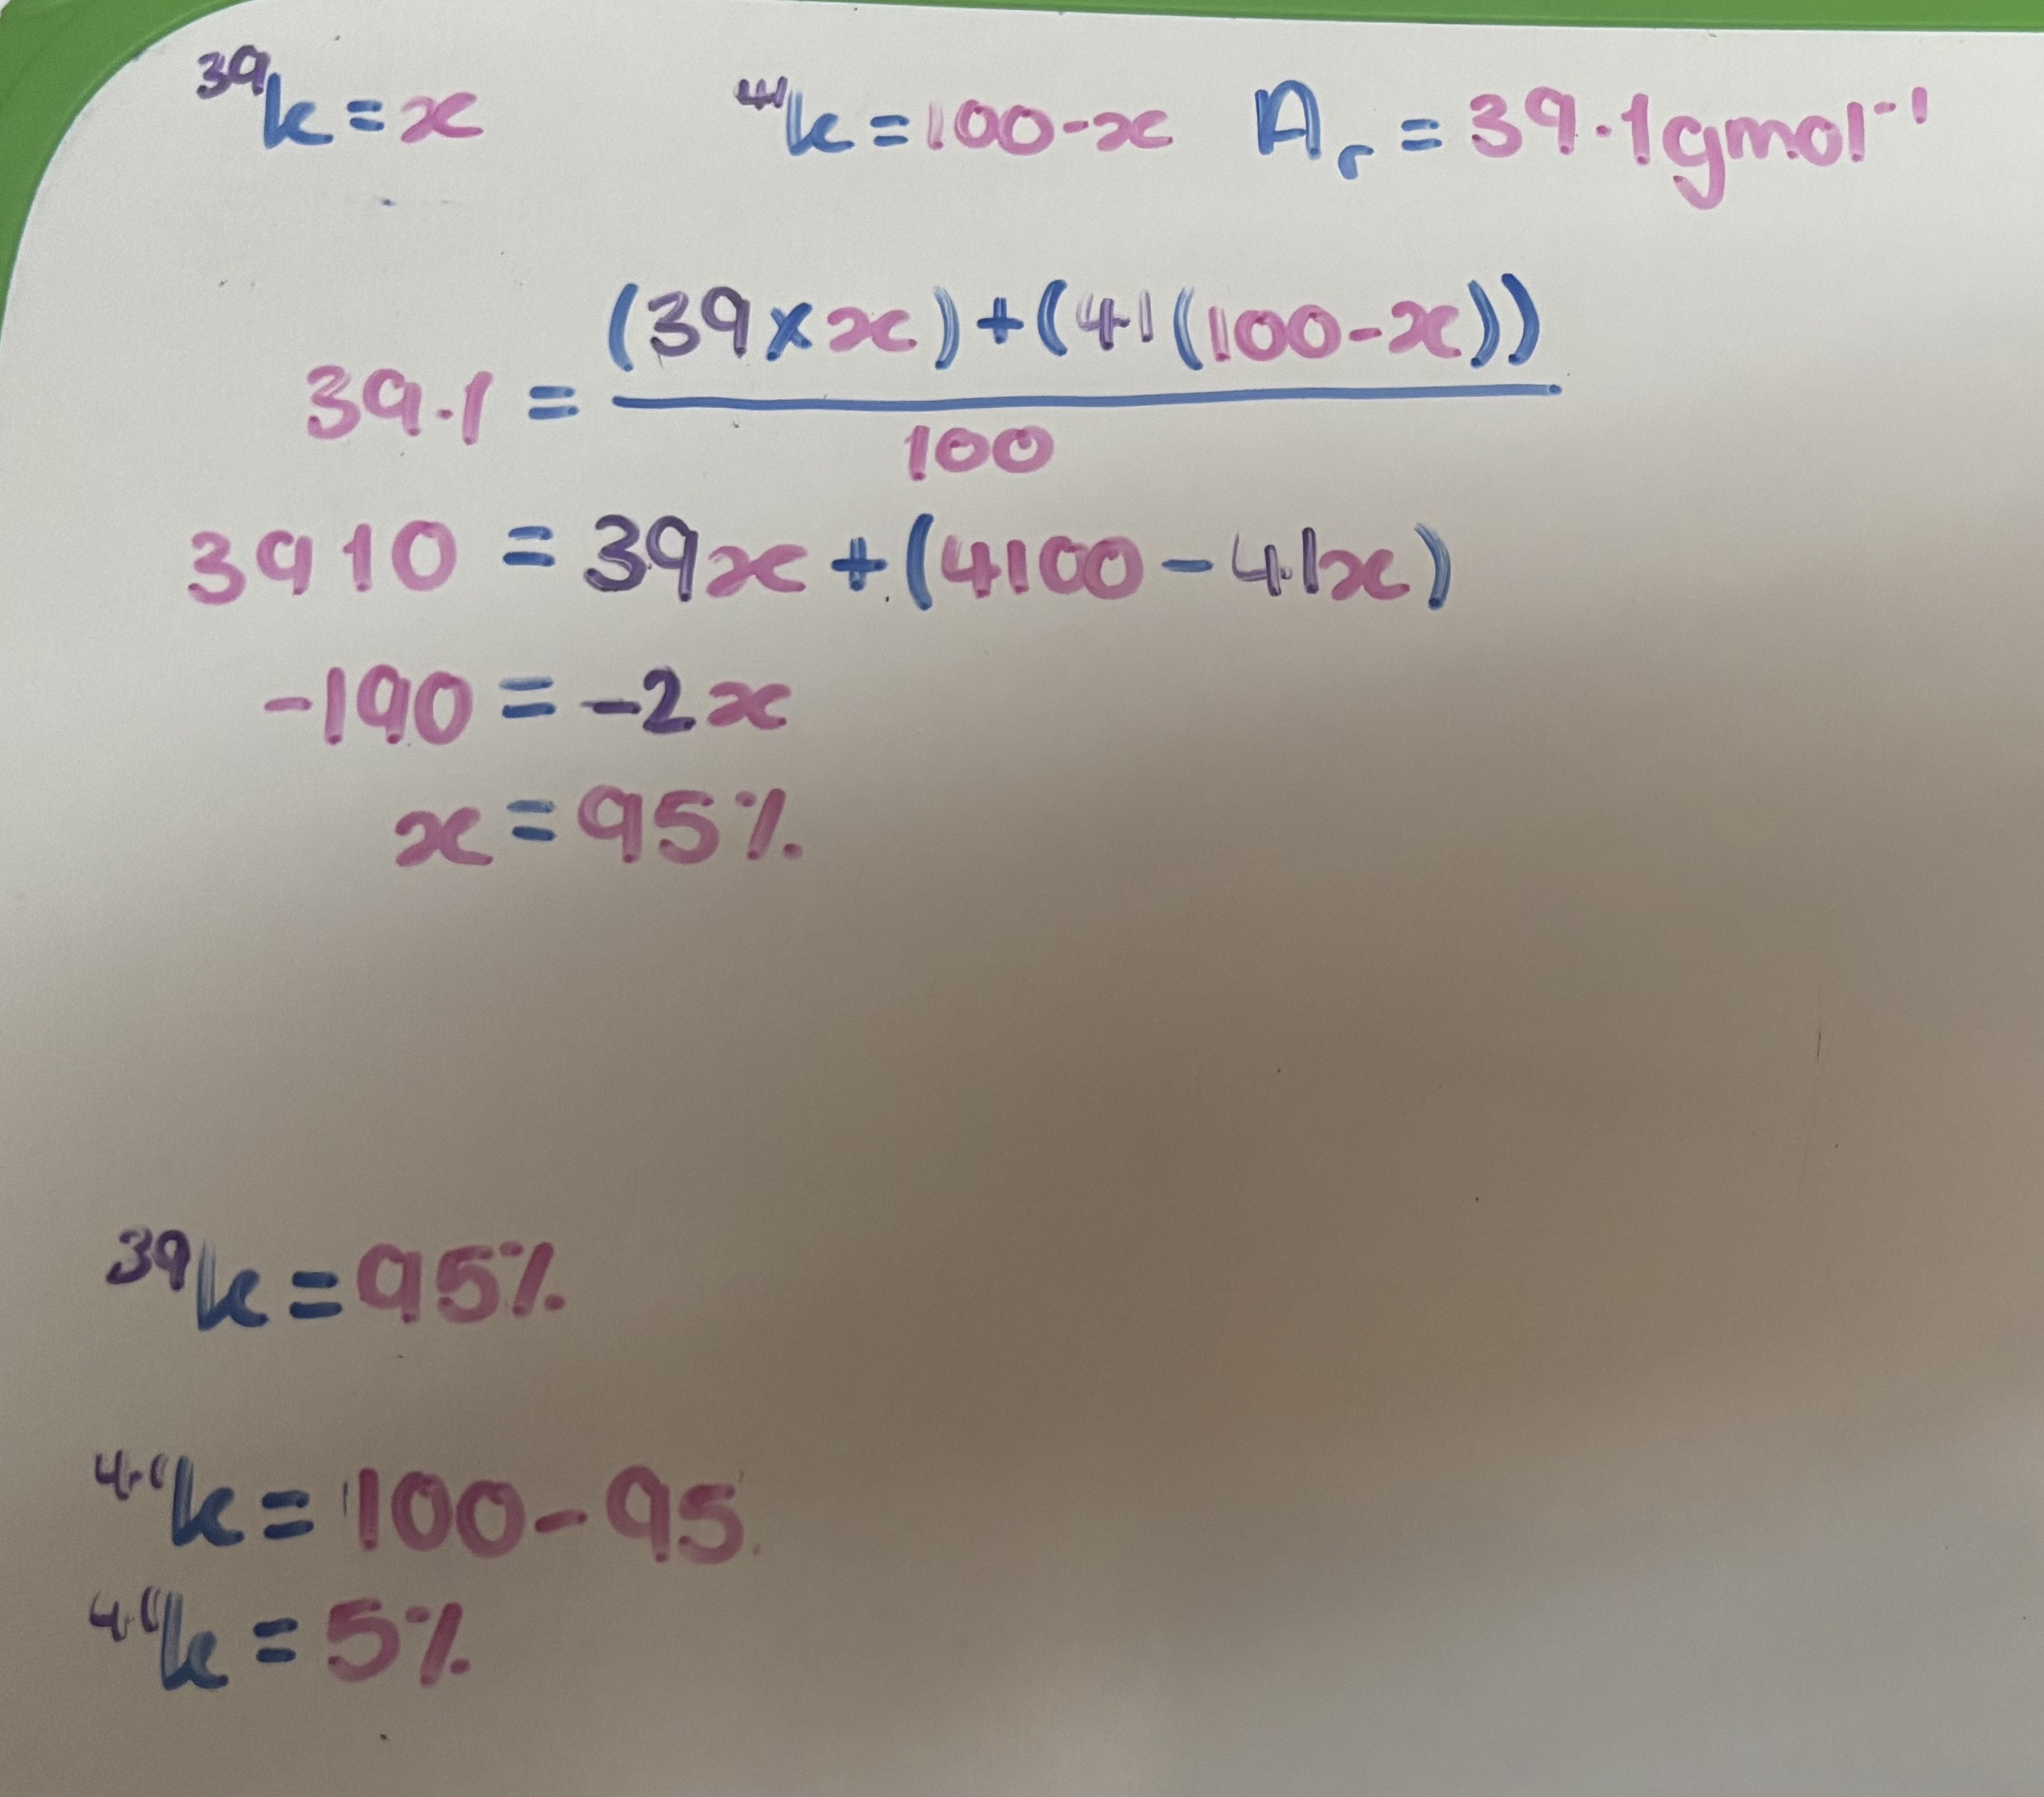 ³⁹k = x ⁴¹k = 100 - x Aᵣ = 39.1gmol⁻¹
39.1 = (39 × x) + (41(100 - x)) / 100
3910 = 39x + (4100 - 41x)
-190 = -2x
x = 95%
³⁹k = 95%
⁴¹k = 100 - 95
⁴¹k = 5%